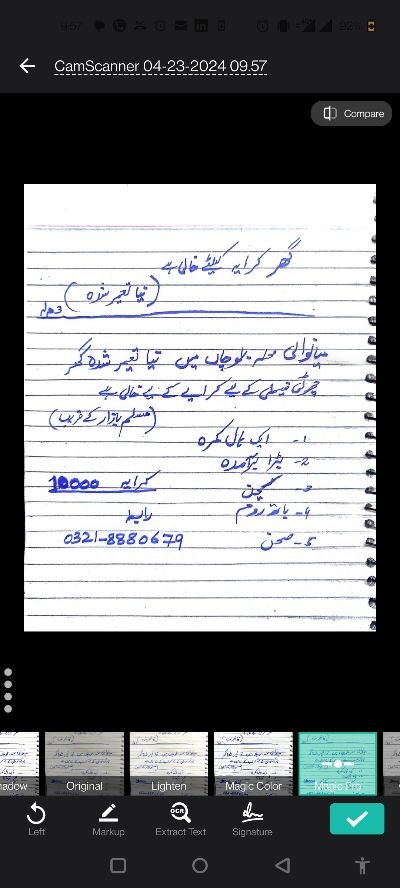 9:57
92%
CamScanner 04-23-2024 09.57
Compare
گھر کرایہ کیلئے خالی ہے
(نیا تعمیر شدہ)
3 مرلہ
میانوالی محلہ بلوچاں میں نیا تعمیر شدہ گھر
چھوٹی فیملی کے لیے کرایے کے لیے خالی ہے
(مسلم بازار کے قریب)
1- ایک ہال کمرہ
2- بڑا برآمدہ
3- کچن
کرایہ 10000
4- باتھ روم
رابطہ
5- صحن
0321-8880679
adow
Original
Lighten
Magic Color
Magic Pro
Left
Markup
OCR
Extract Text
Signature